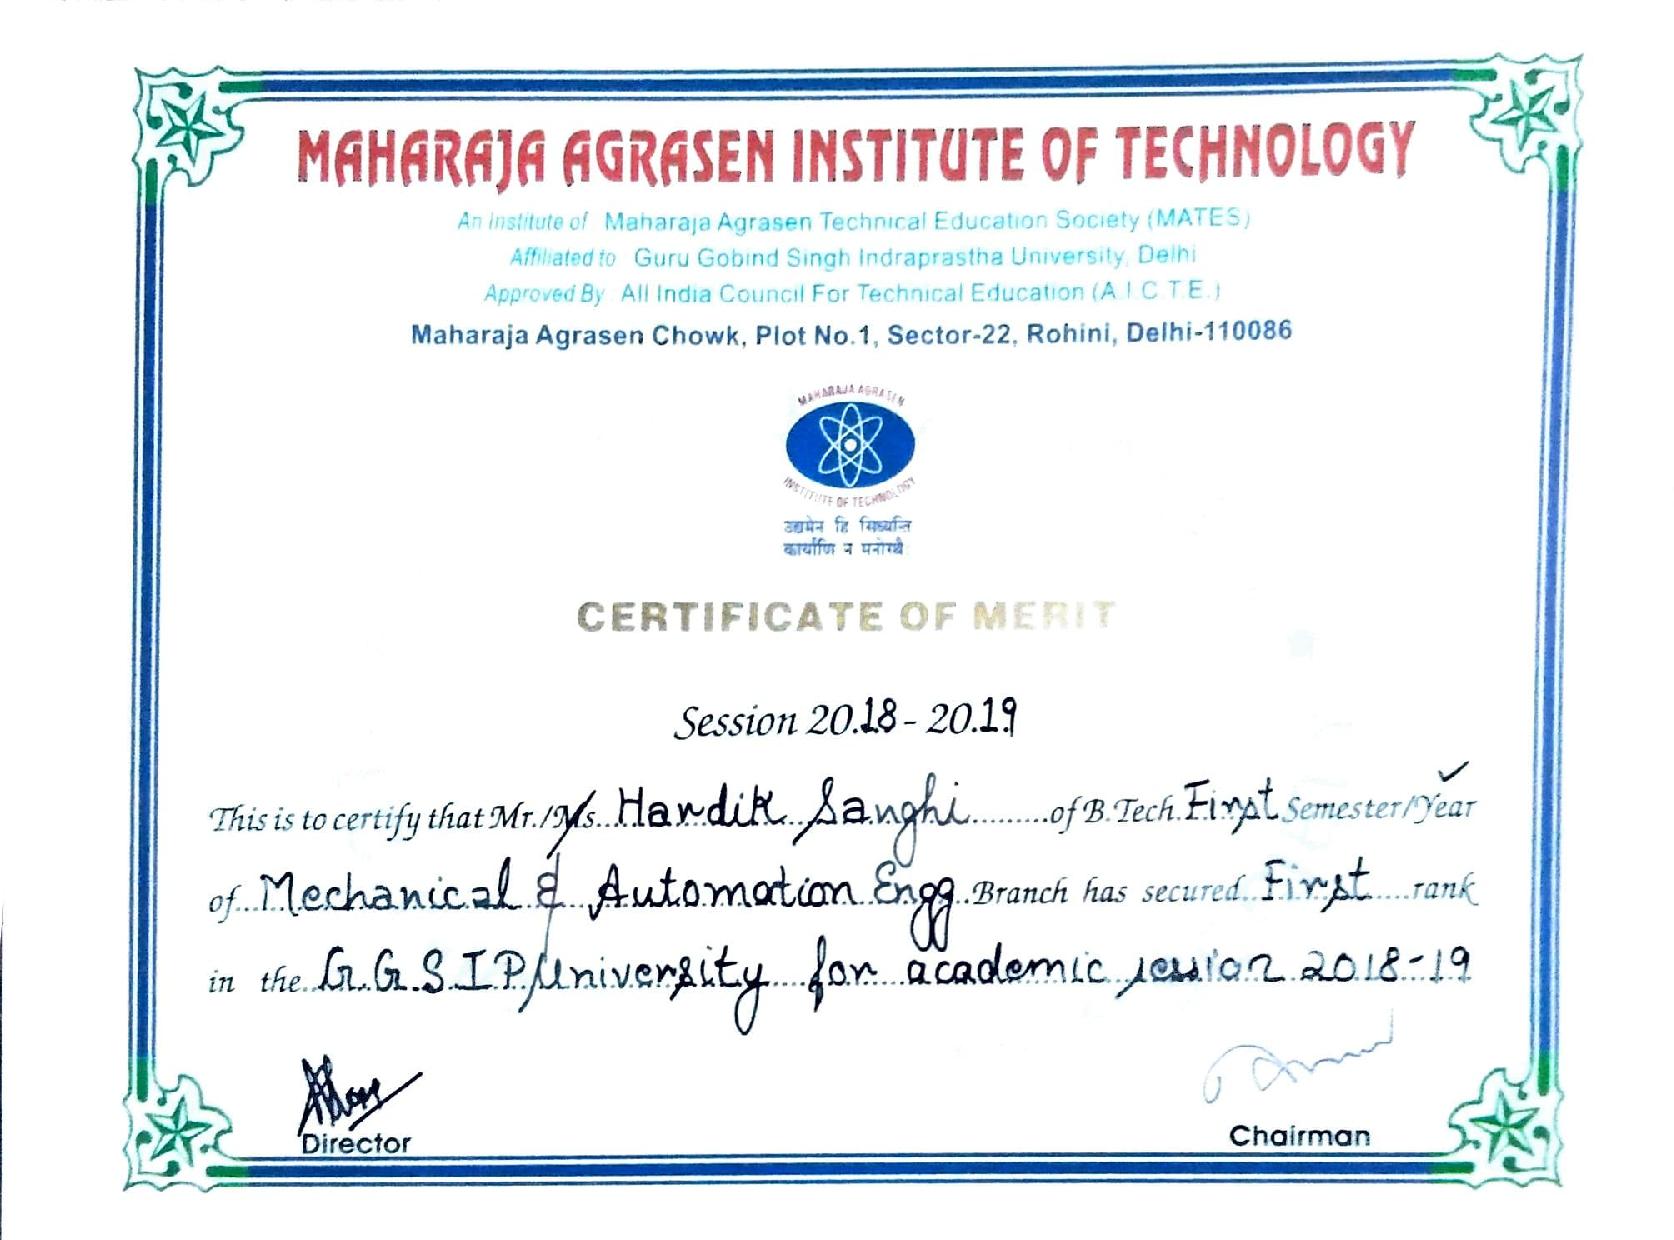 MAHARAJA AGRASEN INSTITUTE OF TECHNOLOGY
An Institute of Maharaja Agrasen Technical Education Society (MATES)
Affiliated to Guru Gobind Singh Indraprastha University, Delhi
Approved By : All India Council For Technical Education (A.I.C.T.E.)
Maharaja Agrasen Chowk, Plot No.1, Sector-22, Rohini, Delhi-110086
MAHARAJA AGRASEN
INSTITUTE OF TECHNOLOGY
उद्यमेन हि सिध्यन्ति
कार्याणि न मनोरथै
CERTIFICATE OF MERIT
Session 20.18 - 20.19
This is to certify that Mr./Ms. Hardik Sanghi of B.Tech. First Semester/Year
of Mechanical & Automation Engg. Branch has secured First rank
in the G.G.S.I.P. University for academic session 2018-19
Director
Chairman